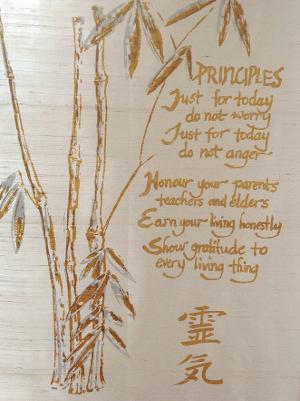 PRINCIPLES
Just for today
do not worry
Just for today
do not anger
Honour your parents
teachers and elders
Earn your living honestly
Show gratitude to
every living thing
靈
気